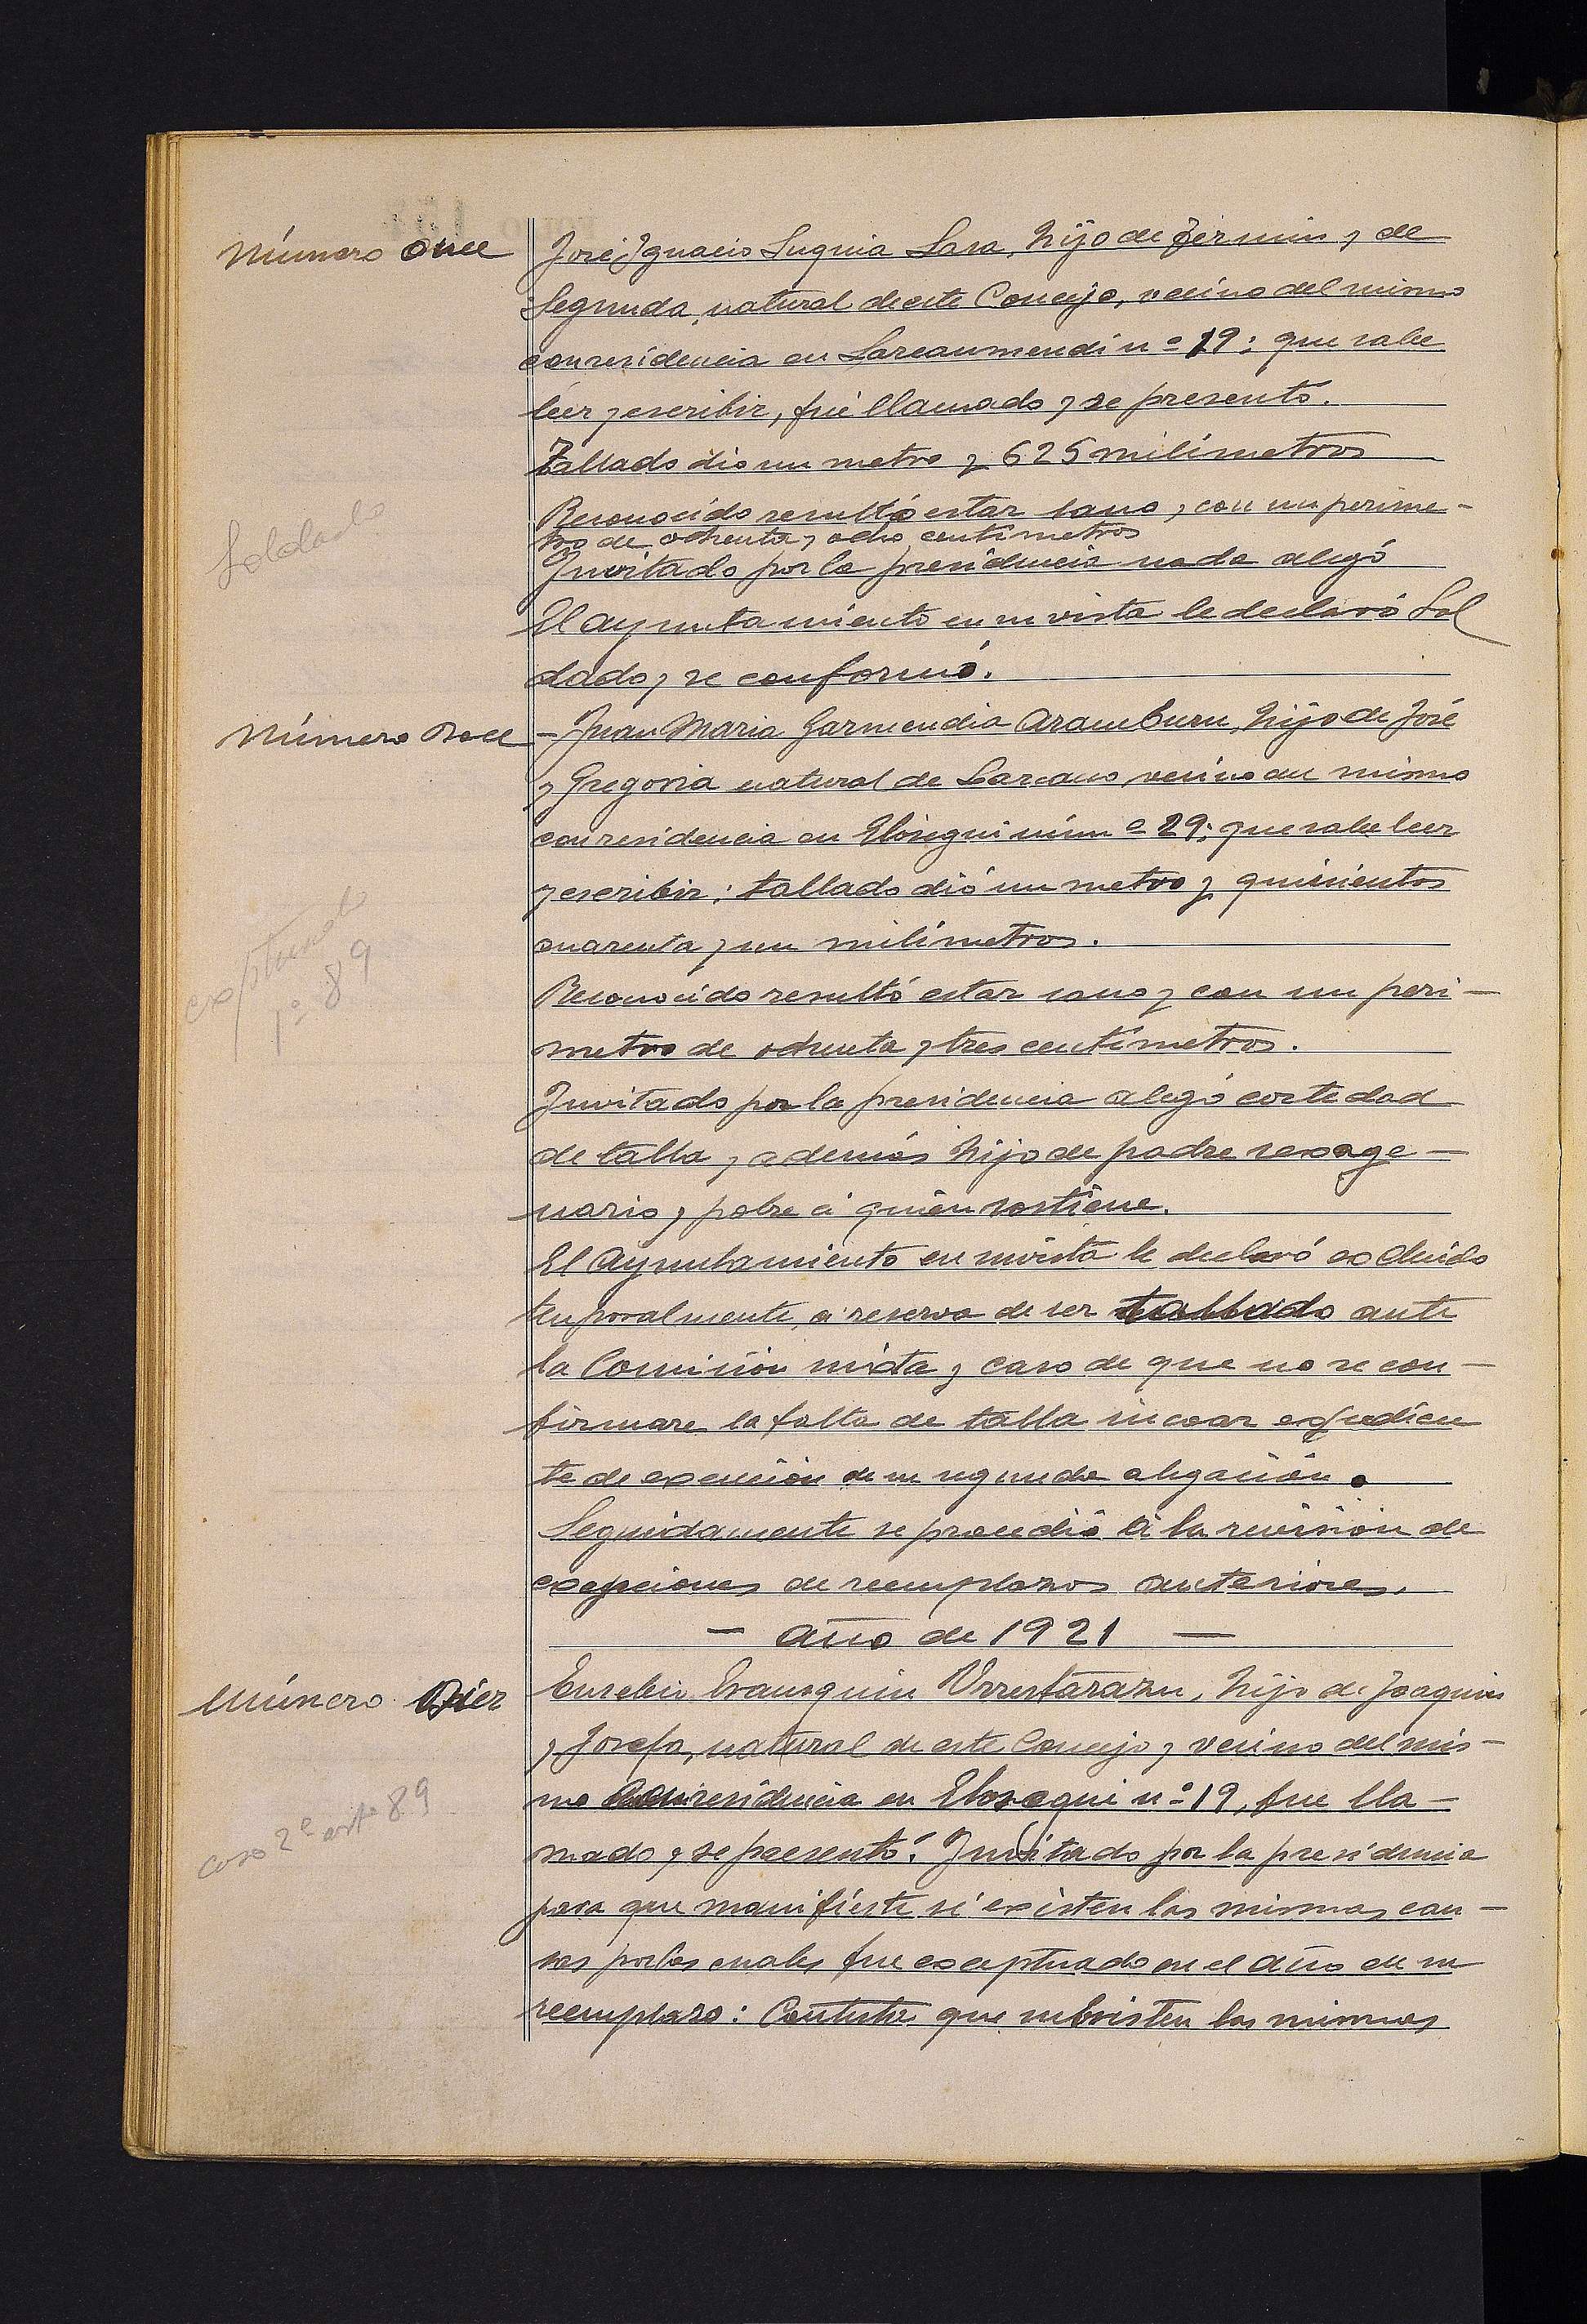 Número once
José Ignacio Suquia Lasa, hijo de Fermin y de
Segunda, natural de este Concejo, vecino del mismo
con residencia en Lareaumendi nº 19; que sabe
leer y escribir, fué llamado y se presentó.
Tallado dio un metro y 625 milímetros
Reconocido resultó estar sano y con un perime-
tro de ochenta y ocho centímetros
Soldado
Invitado por la presidencia nada alegó
El ayuntamiento en su vista le declaró Sol
dado y se conformó.
Número Doce
- Juan Maria Garmendia Aramburu, hijo de José
y Gregoria natural de Lazcano, vecino del mismo
con residencia en Elosegui núm º 29; que sabe leer
y escribir; tallado dió un metro y quinientos
cuarenta y un milímetros.
exptuado
1º 89
Reconocido resultó estar sano y con un peri-
metro de ochenta y tres centímetros.
Invitado por la presidencia alegó cortedad
de talla y además hijo de padre sexage-
nario y pobre á quien sostiene.
El Ayuntamiento en su vista le declaró excluido
temporalmente, á reserva de ser tallado ante
la Comisión mixta y caso de que no se con-
firmare la falta de talla incoar expedien
te de exención de su segunda alegación.
Seguidamente se procedió á la revisión de
excepciones de reemplazos anteriores.
- Año de 1921 -
Número Diez
Eusebio Irausquin Urrestarazu, hijo de Joaquin
y Josefa, natural de este Concejo y vecino del mis-
mo con residencia en Elosegui nº 19, fue lla-
caso 2º artº 89
mado y se presentó. Invitado por la presidencia
para que manifieste si existen las mismas cau-
sas por las cuales fue exceptuado en el año de su
reemplazo: Contestó que subsisten las mismas